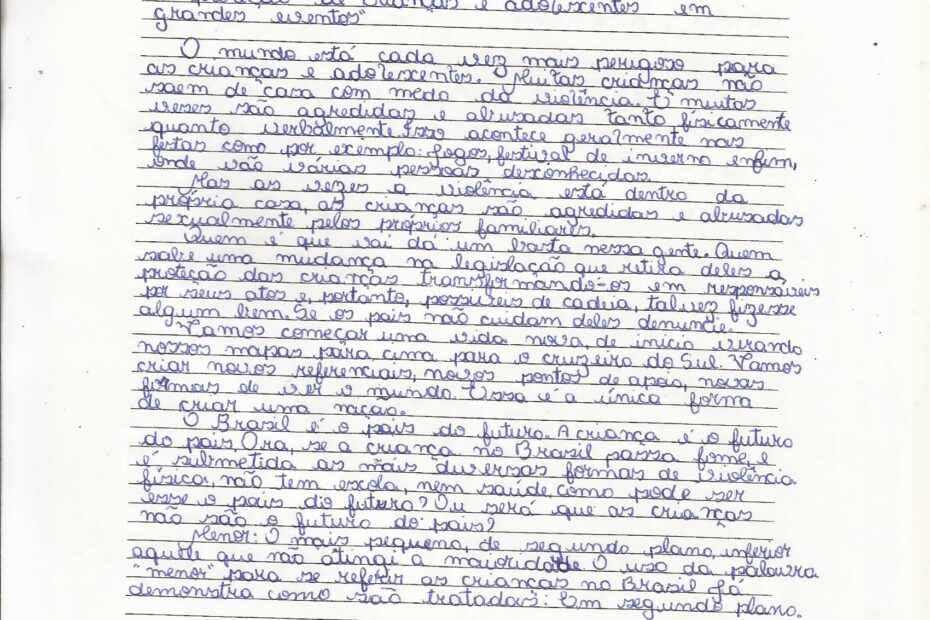 proteção de crianças e adolescentes em
grandes eventos"
O mundo está cada vez mais perigoso para
as crianças e adolescentes. Muitas crianças não
saem de casa com medo da violência. E muitas
vezes são agredidas e abusadas tanto fisicamente
quanto verbalmente. Isso acontece geralmente nas
festas como por exemplo: Jogos, festival de inverno enfim,
onde vão várias pessoas desconhecidas.
Mas as vezes a violência está dentro da
própria casa, as crianças são agredidas e abusadas
sexualmente pelos próprios familiares.
Quem é que vai dá um basta nessa gente. Quem
sabe uma mudança na legislação que retira deles a
proteção das crianças transformando-os em responsáveis
por seus atos e, portanto, possíveis de cadeia, talvez fizesse
algum bem. Se os pais não cuidam deles denuncie.
Vamos começar uma vida nova, de início virando
nossos mapas para cima para o cruzeiro do Sul. Vamos
criar novos referenciais, novos pontos de apoio, novas
formas de ver o mundo. Essa é a única forma
de criar uma nação.
O Brasil é o país do futuro. A criança é o futuro
do país. Ora, se a criança no Brasil passa fome, e
é submetida as mais diversas formas de violência
física, não tem escola, nem saúde, como pode ser
esse o país do futuro? Ou será que as crianças
não são o futuro do país?
Menor: O mais pequeno, de segundo plano, inferior
aquele que não atingi a maioridade O uso da palavra
"menor" para se referir as crianças no Brasil já
demonstra como são tratadas: Em segundo plano.